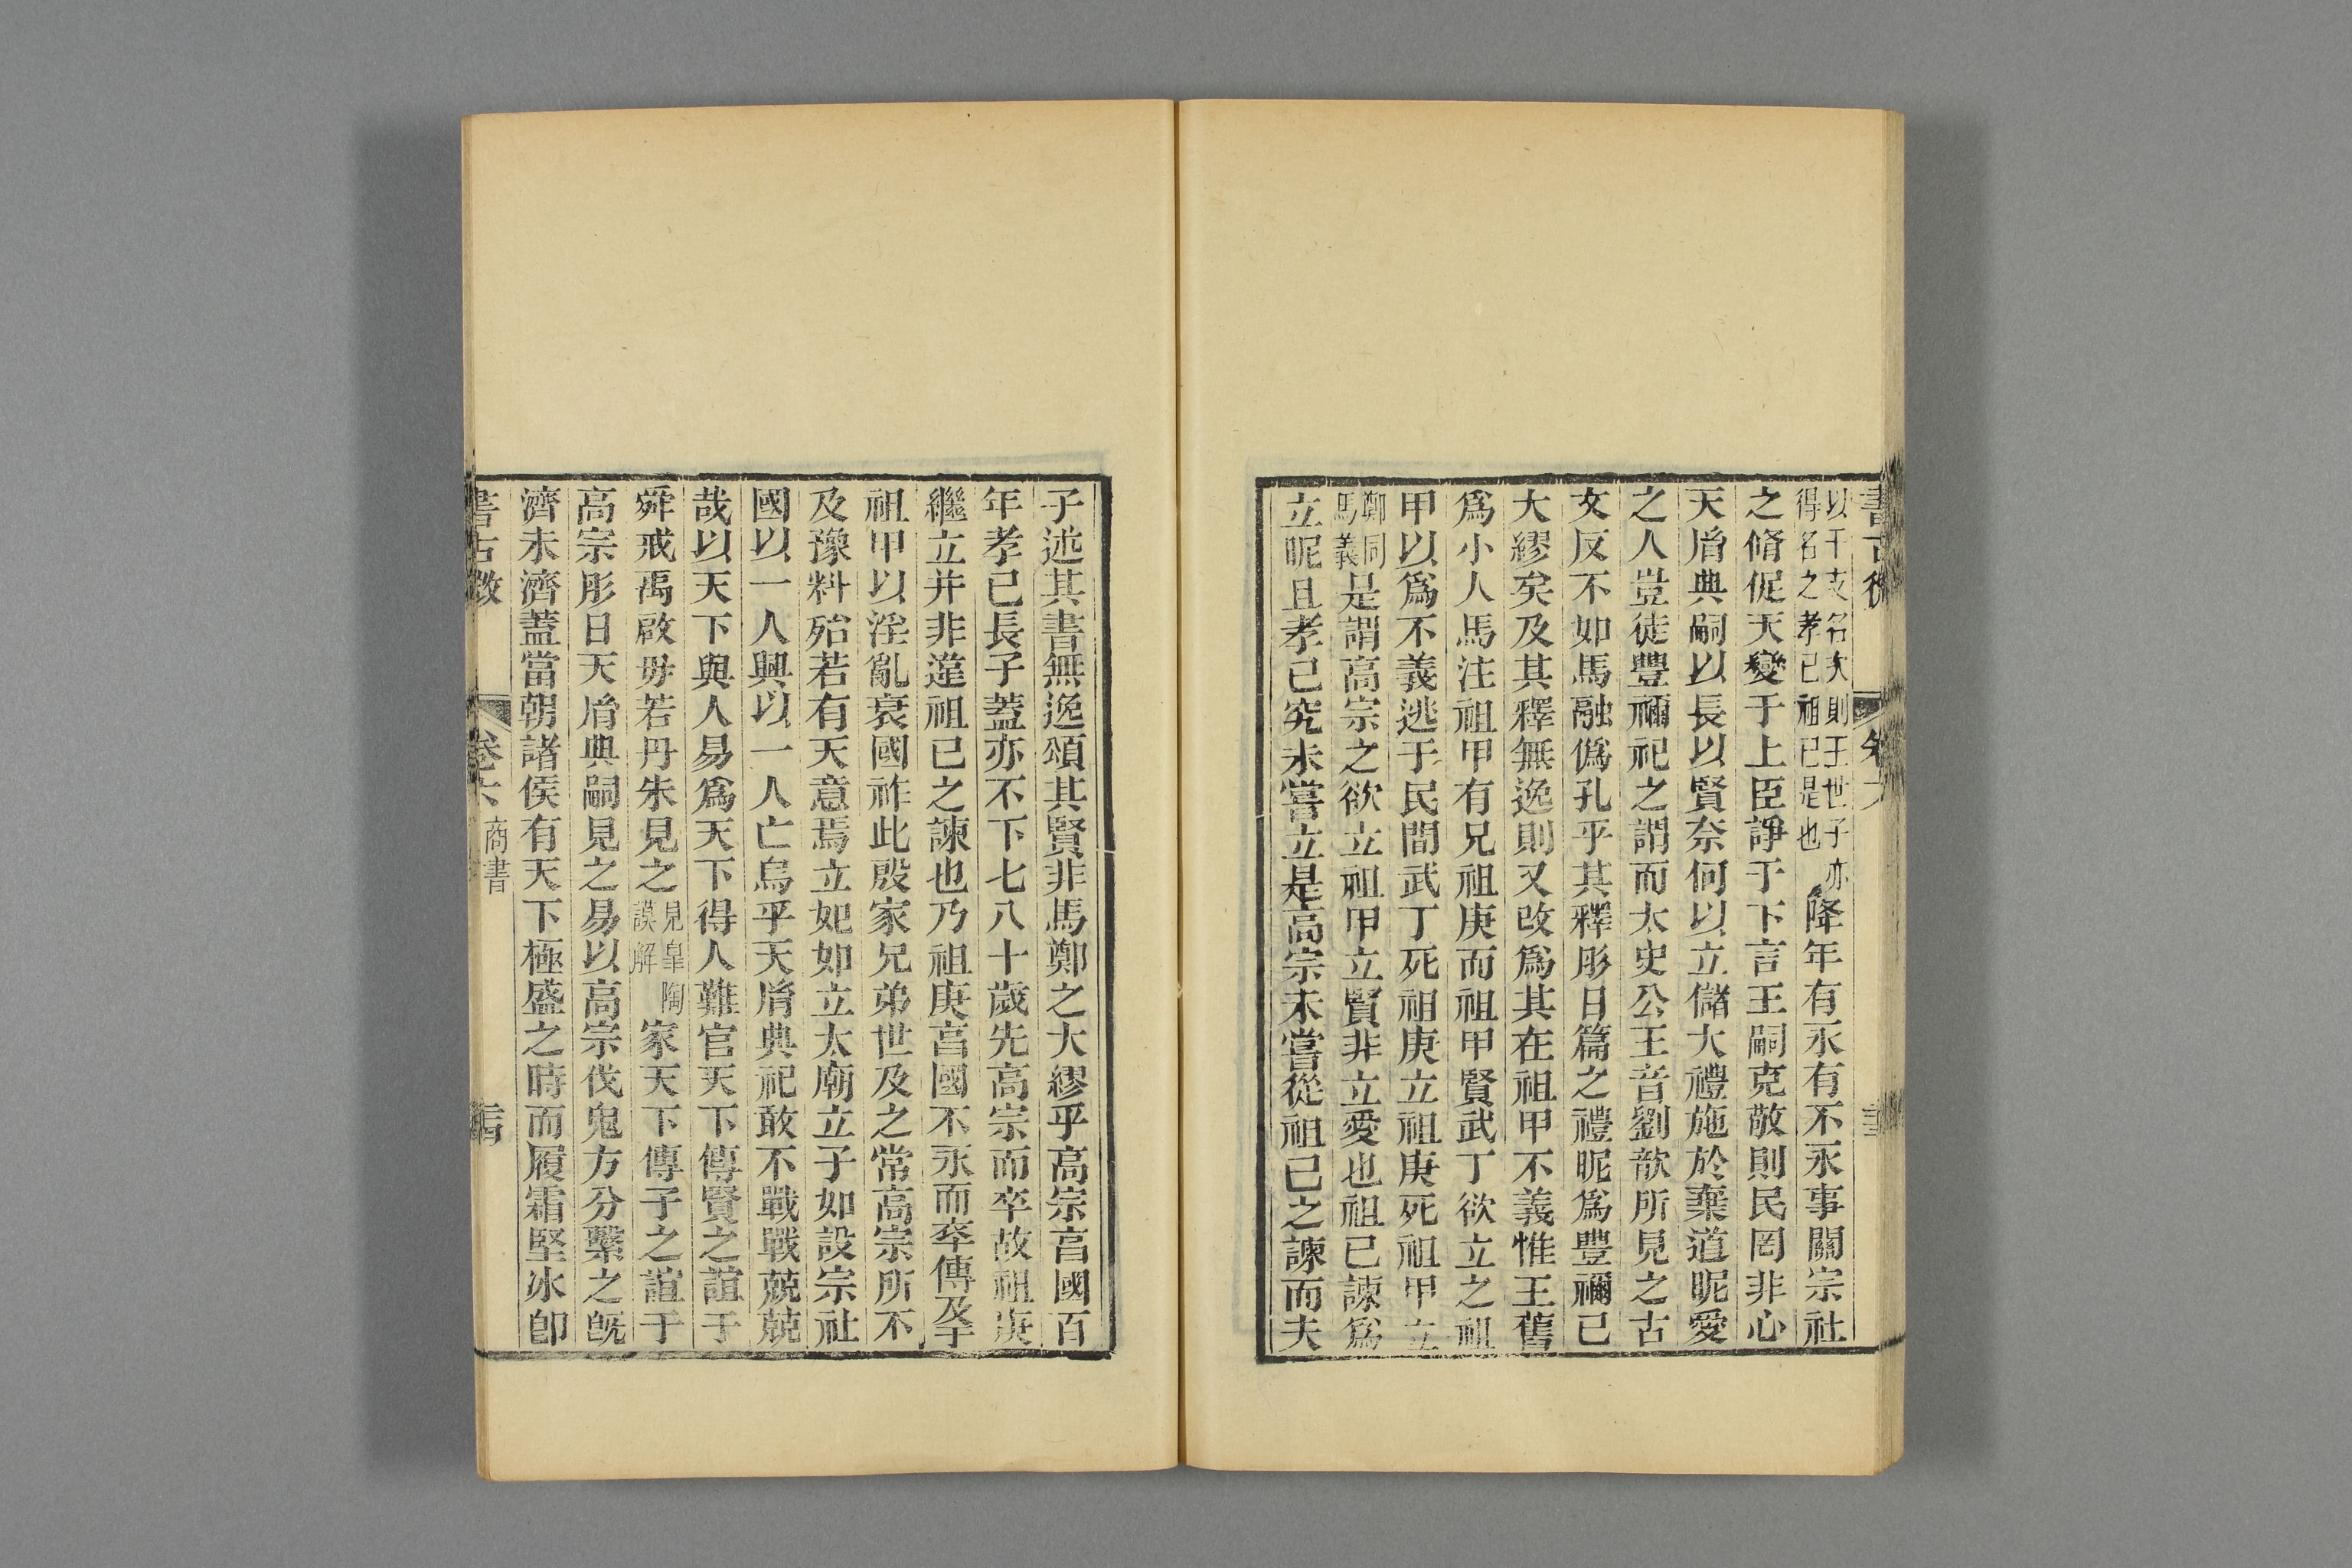 書古微
卷六
以干支名次則王世子亦
得名之孝己祖己是也
降年有永有不永事關宗社
之脩促天變于上臣諍于下言王嗣克敬則民罔非心
天胤典嗣以長以賢奈何以立儲大禮施於棄道昵愛
之人豈徒豐禰祀之謂而太史公王音劉歆所見之古
文反不如馬融僞孔乎其釋肜日篇之禮昵爲豐禰已
大繆矣及其釋無逸則又改爲其在祖甲不義惟王舊
爲小人馬注祖甲有兄祖庚而祖甲賢武丁欲立之祖
甲以爲不義逃于民間武丁死祖庚立祖庚死祖甲立
鄭同
馬義
是謂高宗之欲立祖甲立賢非立愛也祖己諫爲
立昵且孝己究未嘗立是高宗未嘗從祖己之諫而夫
子述其書無逸頌其賢非馬鄭之大繆乎高宗亯國百
年孝己長子蓋亦不下七八十歲先高宗而卒故祖庚
繼立并非遵祖己之諫也乃祖庚亯國不永而卒傳及于
祖甲以淫亂衰國祚此殷家兄弟世及之常高宗所不
及豫料殆若有天意焉立妃如立太廟立子如設宗社
國以一人興以一人亡烏乎天胤典祀敢不戰戰兢兢
哉以天下與人易爲天下得人難官天下傳賢之誼于
舜戒禹啟毋若丹朱見之
見皐陶
謨解
家天下傳子之誼于
高宗肜日天胤典嗣見之易以高宗伐鬼方分繫之旣
濟未濟蓋當朝諸侯有天下極盛之時而履霜堅冰卽
書古微
卷六
商書